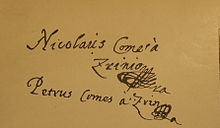 Nicolaus Comes à
Zrinio
Petrus Comes à Zrin